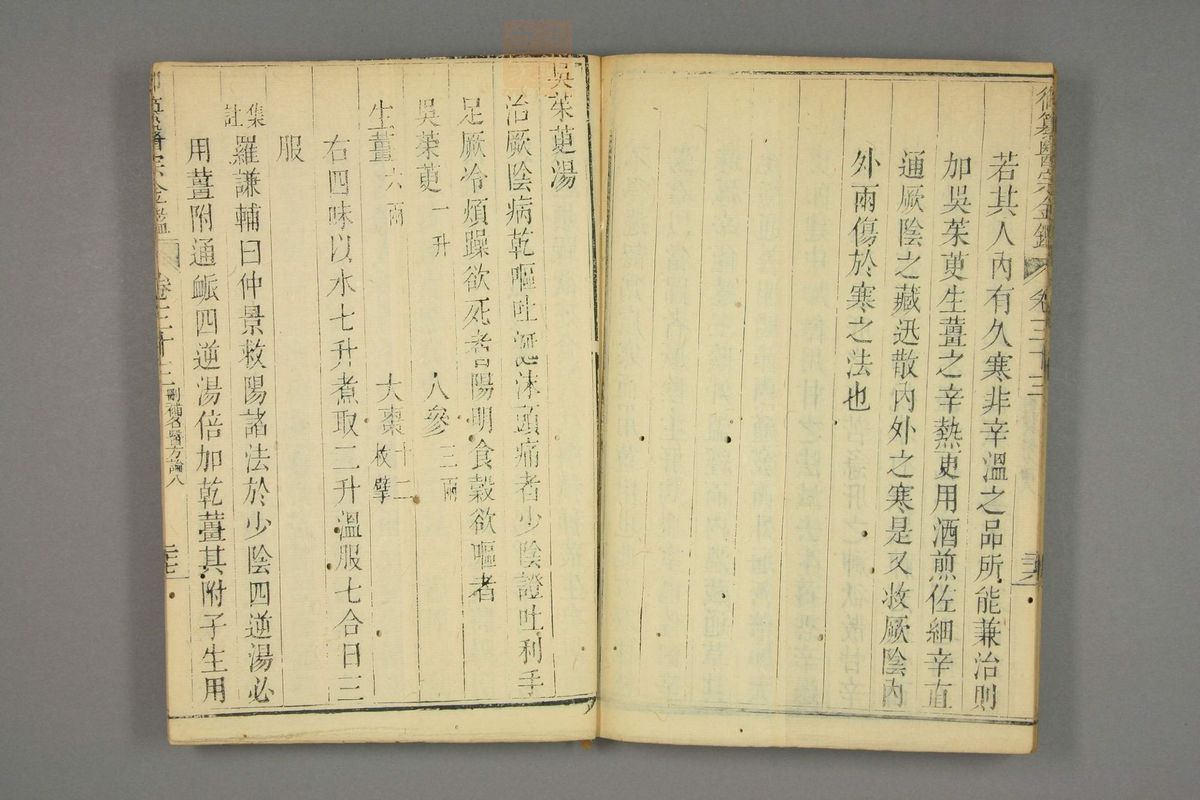 若其人內有久寒非辛溫之品所能兼治則
加吳茱萸生薑之辛熱更用酒煎佐細辛直
通厥陰之藏迅散內外之寒是又救厥陰內
外兩傷於寒之法也
吳茱萸湯
治厥陰病乾嘔吐涎沫頭痛者少陰證吐利手
足厥冷煩躁欲死者陽明食穀欲嘔者
吳茱萸一升 人參三兩
生薑六兩 大棗十二枚擘
右四味以水七升煮取二升溫服七合日三
服
集註 羅謙輔曰仲景救陽諸法於少陰四逆湯必
用薑附通脈四逆湯倍加乾薑其附子生用
卷三十三 刪補名醫方論八